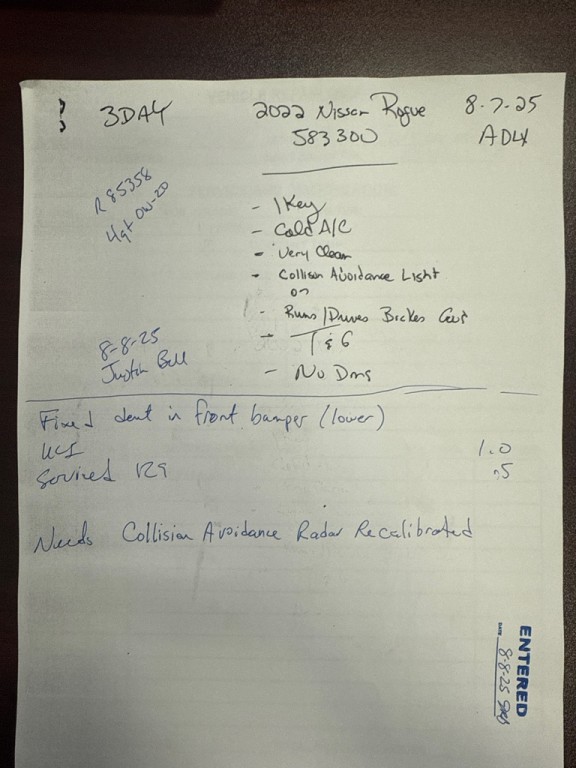 3DAY
2022 Nissan Rogue
8-7-25
583300
ADLX
R 85358
4qt 0W-20
- 1 Key
- Cold A/C
- Very Clean
- Collison Avoidance Light
on
- Runs/Drives Brakes
- T & G
- No Dmg
8-8-25
Justin Bell
Fixed dent in front bumper (lower)
UCI 1.0
Serviced 129 .5
Needs Collision Avoidance Radar Recalibrated
ENTERED
DATE 8-8-25